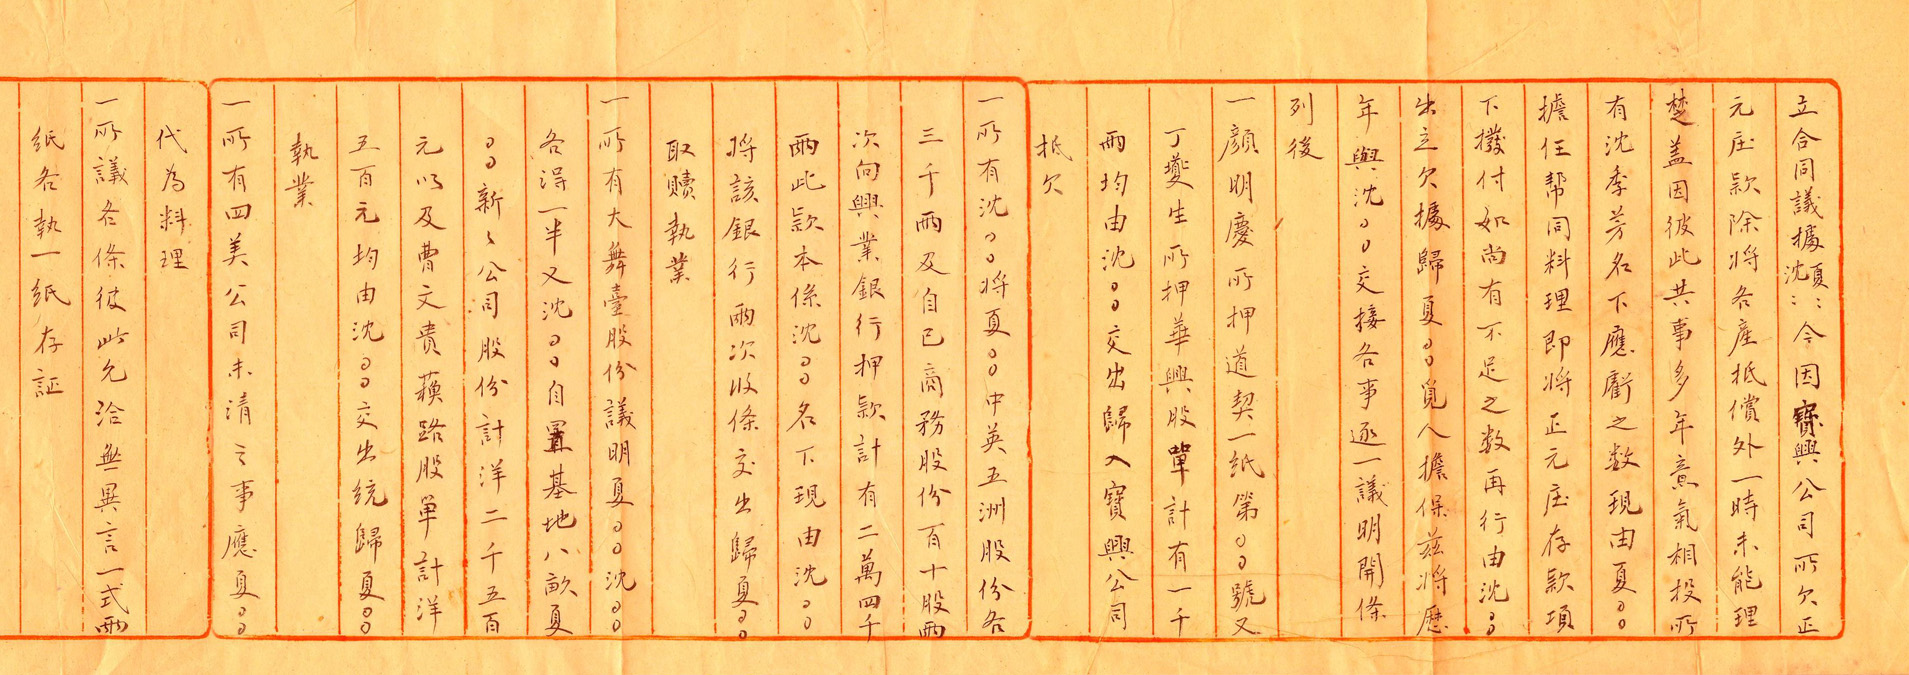 立合同議據夏沈::今因寶興公司所欠正
元庄款除將各產抵償外一時未能理
楚蓋因彼此共事多年意氣相投所
有沈季芳名下應虧之数現由夏ㄖㄖ
擔任幫同料理即將正元庄存款項
下撥付如尚有不足之数再行由沈ㄖㄖ
出立欠據歸夏ㄖㄖ覓人擔保茲將歷
年與沈ㄖㄖ交接各事逐一議明開條
列後
一顏明慶所押道契一紙第ㄖㄖ號又
丁夔生所押華興股單計有一千
兩均由沈ㄖㄖ交出歸入寶興公司
抵欠
一所有沈ㄖㄖ將夏ㄖㄖ中英五洲股份各
三千兩及自己商務股份百十股兩
次向興業銀行押款計有二萬四千
兩此款本係沈ㄖㄖ名下現由沈ㄖㄖ
將該銀行兩次收條交出歸夏ㄖㄖ
取贖執業
一所有大舞臺股份議明夏ㄖㄖ沈ㄖㄖ
各得一半又沈ㄖㄖ自置基地八畝夏
ㄖㄖ新〻公司股份計洋二千五百
元以及曹文貴蘓路股單計洋
五百元均由沈ㄖㄖ交出統歸夏ㄖㄖ
執業
一所有四美公司未清之事應夏ㄖㄖ
代為料理
一所議各條彼此允洽無異言一式兩
紙各執一紙存証